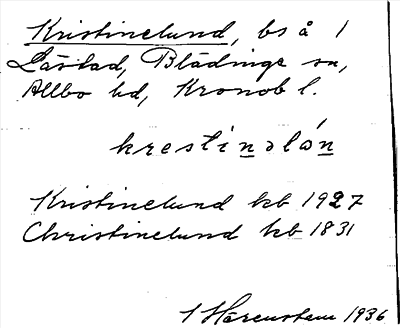 Kristinelund, bs å 1
Låstad, Blädinge sn,
Allbo hd, Kronob l.
krestinəlón
Kristinelund kb 1927
Christinelund kb 1831
Harenstam 1936